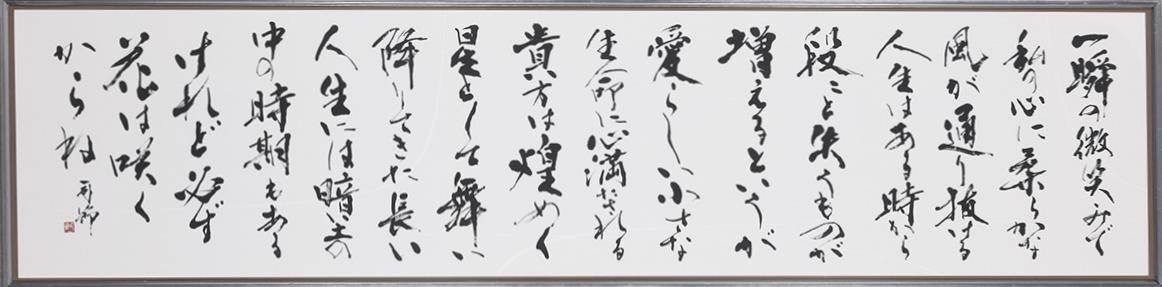 一瞬の微笑みで
私の心に柔らかな
風が通り抜ける
人生はある時から
段々と失うものが
増えるというが
愛らしい小さな
生命に心満たされる
貴方は煌めく
星として舞い
降りてきた長い
人生には暗闇の
中の時期もある
けれど必ず
花は咲く
から